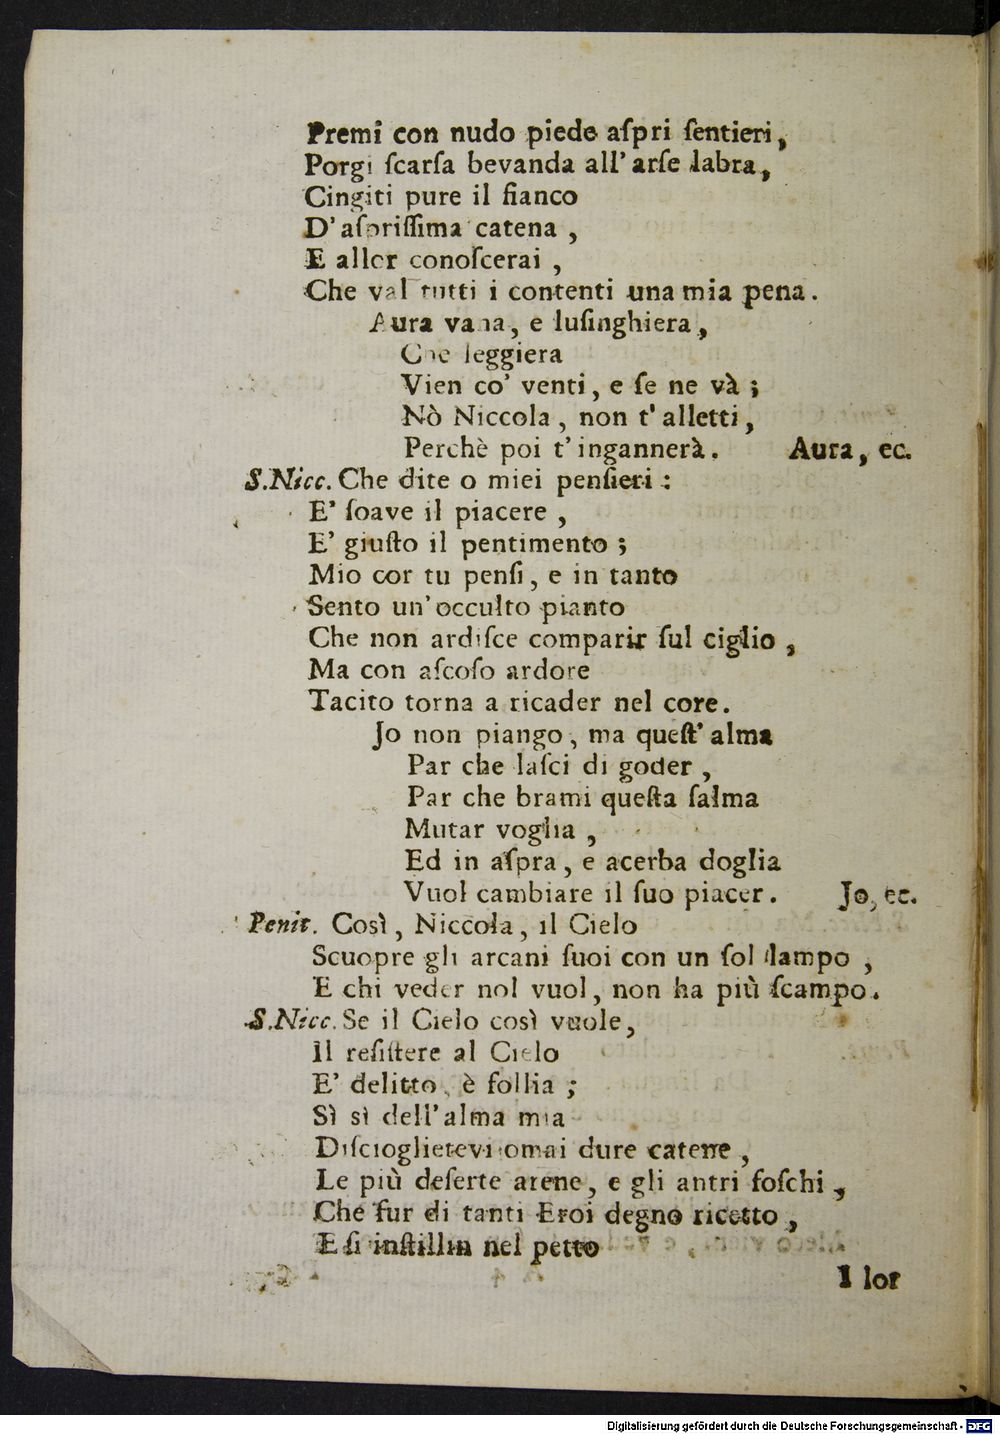 Premi con nudo piede aſpri ſentieri,
Porgi ſcarſa bevanda all' arſe labra,
Cingiti pure il fianco
D' aſpriſſima catena ,
E allor conoſcerai ,
Che val tutti i contenti una mia pena .
Aura vana, e luſinghiera,
Che leggiera
Vien co' venti, e ſe ne và ;
Nò Niccola, non t' alletti,
Perchè poi t' ingannerà. Aura, ec.
S.Nicc. Che dite o miei penſieri :
E' ſoave il piacere ,
E' giuſto il pentimento ;
Mio cor tu penſi, e in tanto
Sento un' occulto pianto
Che non ardiſce comparir ſul ciglio ,
Ma con aſcoſo ardore
Tacito torna a ricader nel core.
Jo non piango, ma queſt' alma
Par che laſci di goder ,
Par che brami queſta ſalma
Mutar voglia ,
Ed in aſpra, e acerba doglia
Vuol cambiare il ſuo piacer. Jo, ec.
Penit. Così, Niccola, il Cielo
Scuopre gli arcani ſuoi con un ſol lampo ,
E chi veder nol vuol, non ha più ſcampo.
S.Nicc. Se il Cielo così vuole,
Il reſiſtere al Cielo
E' delitto, è follia ;
Sì sì dell' alma mia
Diſcioglietevi omai dure catene ,
Le più deſerte arene, e gli antri foſchi ,
Che fur di tanti Eroi degno ricetto ,
E ſi inſtillin nel petto
I lor
Digitalisierung gefördert durch die Deutsche Forschungsgemeinschaft - DFG